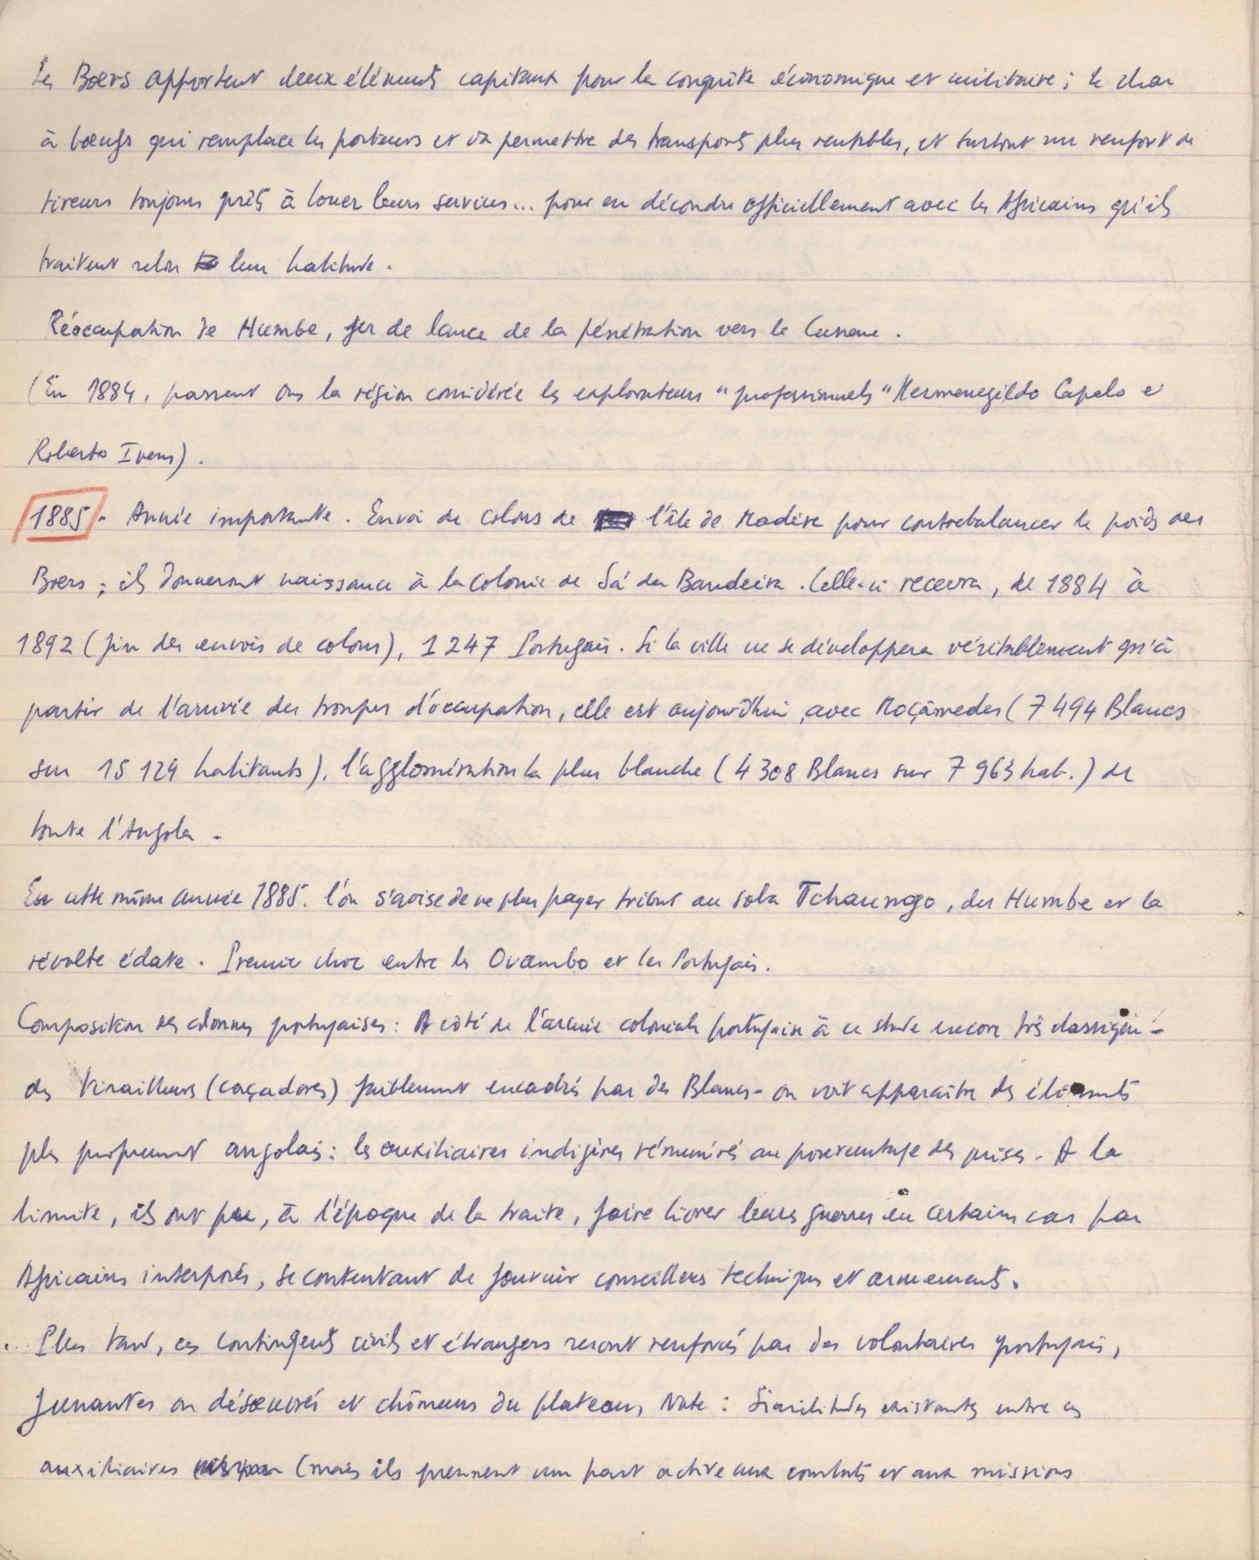 Les Boers apportent deux éléments capitaux pour la conquête économique et militaire ; le char
à bœufs qui remplace les porteurs et va permettre des transports plus rentables, et surtout un renfort de
tireurs toujours prêts à louer leurs services... pour en découdre officiellement avec les Africains qu'ils
traitent selon leur habitude.
Réoccupation de Humbe, fer de lance de la pénétration vers le Cunene.
(En 1884, passent dans la région considérée les explorateurs "professionnels" Hermenegildo Capelo et
Roberto Ivens).
1885 - Année importante. Envoi de colons de l'île de Madère pour contrebalancer le poids des
Boers ; ils donneront naissance à la colonie de Sá da Bandeira. Celle-ci recevra, de 1884 à
1892 (fin des envois de colons), 1 247 Portugais. Si la ville ne se développera véritablement qu'à
partir de l'arrivée des troupes d'occupation, elle est aujourd'hui, avec Moçâmedes (7 494 Blancs
sur 15 129 habitants), l'agglomération la plus blanche (4 308 Blancs sur 7 963 hab.) de
toute l'Angola.
En cette même année 1885, l'on s'avise de ne plus payer tribut au soba Tchaungo, du Humbe et la
révolte éclate. Premier choc entre les Ovambo et les Portugais.
Composition des colonnes portugaises : A côté de l'armée coloniale portugaise à ce stade encore très classique -
des tirailleurs (caçadores) faiblement encadrés par des Blancs - on voit apparaître des éléments
plus proprement angolais : les auxiliaires indigènes rémunérés au pourcentage des prises. A la
limite, ils ont pu, à l'époque de la traite, faire livrer leurs guerres en certains cas par
Africains interposés, se contentant de fournir conseillers techniques et armements.
Plus tard, ces contingents civils et étrangers seront renforcés par des volontaires portugais,
funantes ou désœuvrés et chômeurs du plateau, Note : Similitudes existantes entre ces
auxiliaires (mais ils prennent une part active aux combats et aux missions